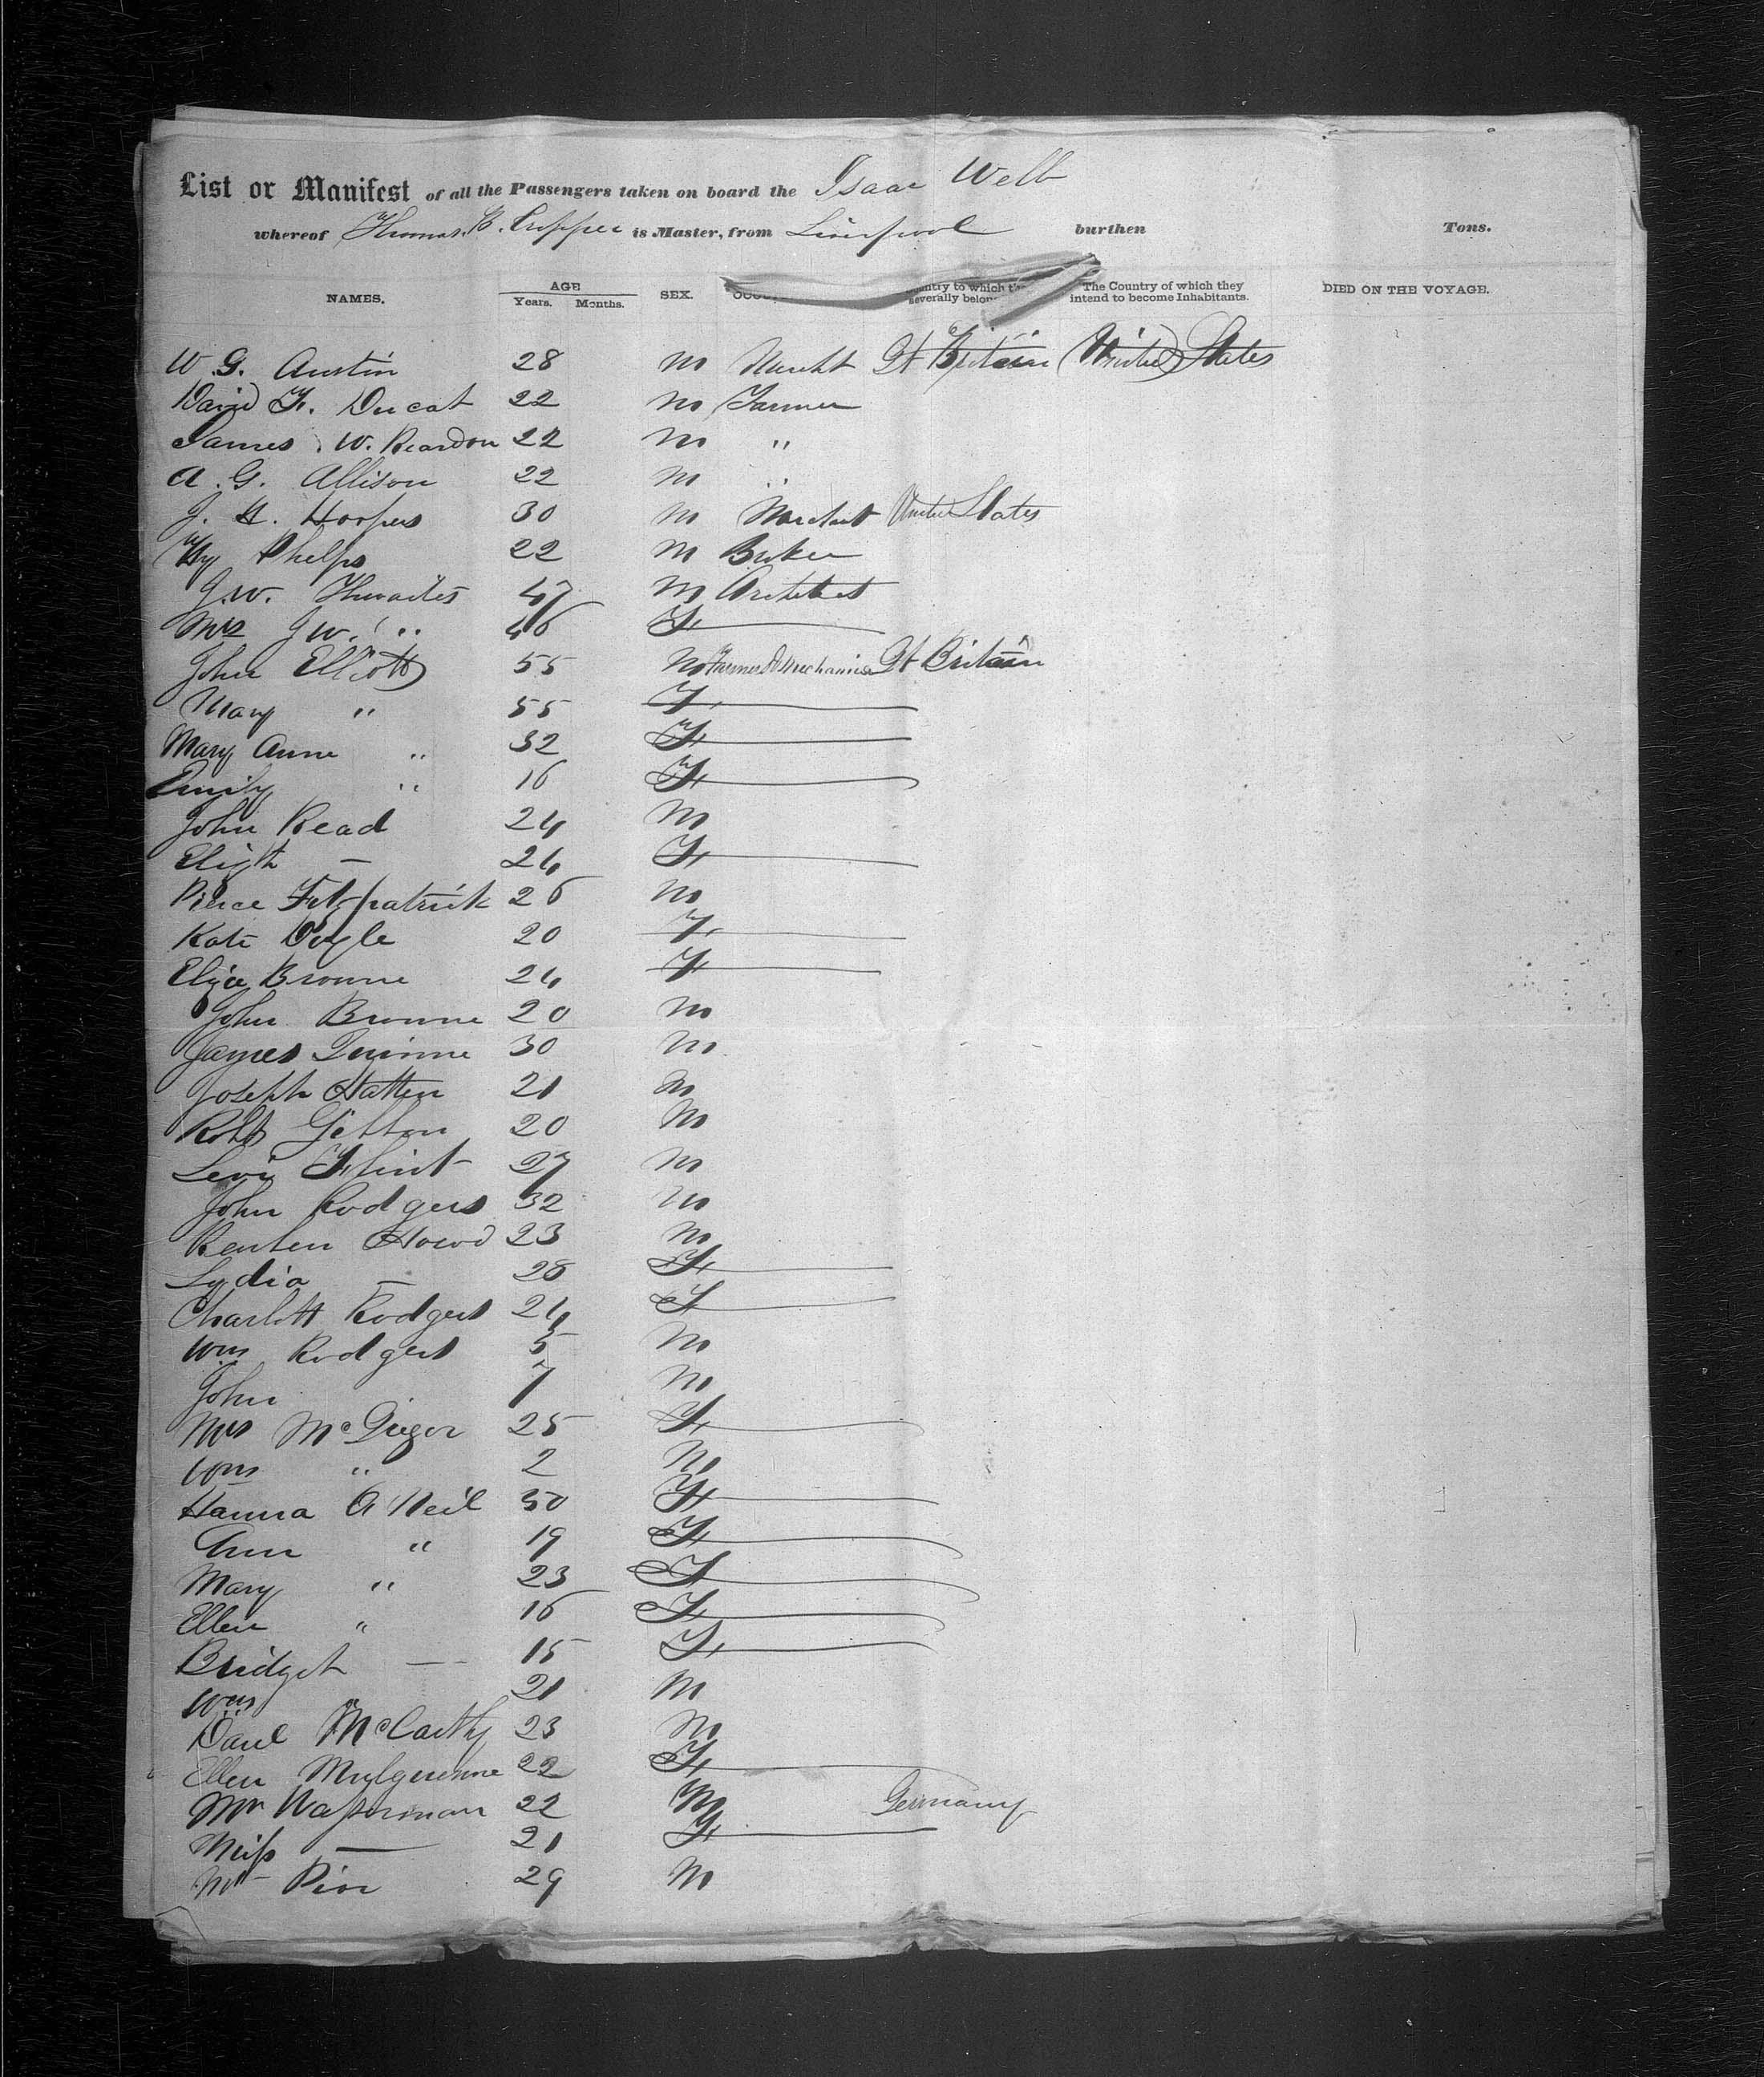 List or Manifest of all the Passengers taken on board the Isaac Webb
whereof Thomas B. Cropper is Master, from Liverpool burthen Tons.
NAMES. AGE Years. Months. SEX. to which severally The Country of which they intend to become Inhabitants. DIED ON THE VOYAGE.
W. G. Austin 28 M Mercht Gt Britain United States
David F. Ducat 22 M Farmer
James W. Reardon 22 M "
A. G. Allison 22 M "
J. H. Hoopes 30 M United States
Hy Phelps 22 M Broker
J. W. Thwaites 47 M Architect
Mrs J W. " 46 F
John Elliott 55 M Gt Britain
Mary " 55 F
Mary Anne " 32 F
Emily " 16 F
John Read 24 M
Elizth — 24 F
Pierce Fitzpatrick 26 M
Kate Doyle 20 F
Eliza Browne 24 F
John Browne 20 M
James Quinne 30 M
Joseph Hatten 21 M
Robt 20 M
Levi Flint 27 M
John Rodgers 32 M
Reuben 23 M
Lydia — 28 F
Charlott Rodgers 24 F
Wm Rodgers 5 M
John 7 M
Mrs McGregor 25 F
Wm " 2 M
Hanna O'Neil 50 F
Ann " 19 F
Mary " 23 F
Ellen " 16 F
Bridget — 15 F
Wm 21 M
Danl McCarthy 23 M
Ellen 22 F
Mr Wasserman 22 M Germany
Miss — 21 F
Mr 29 M